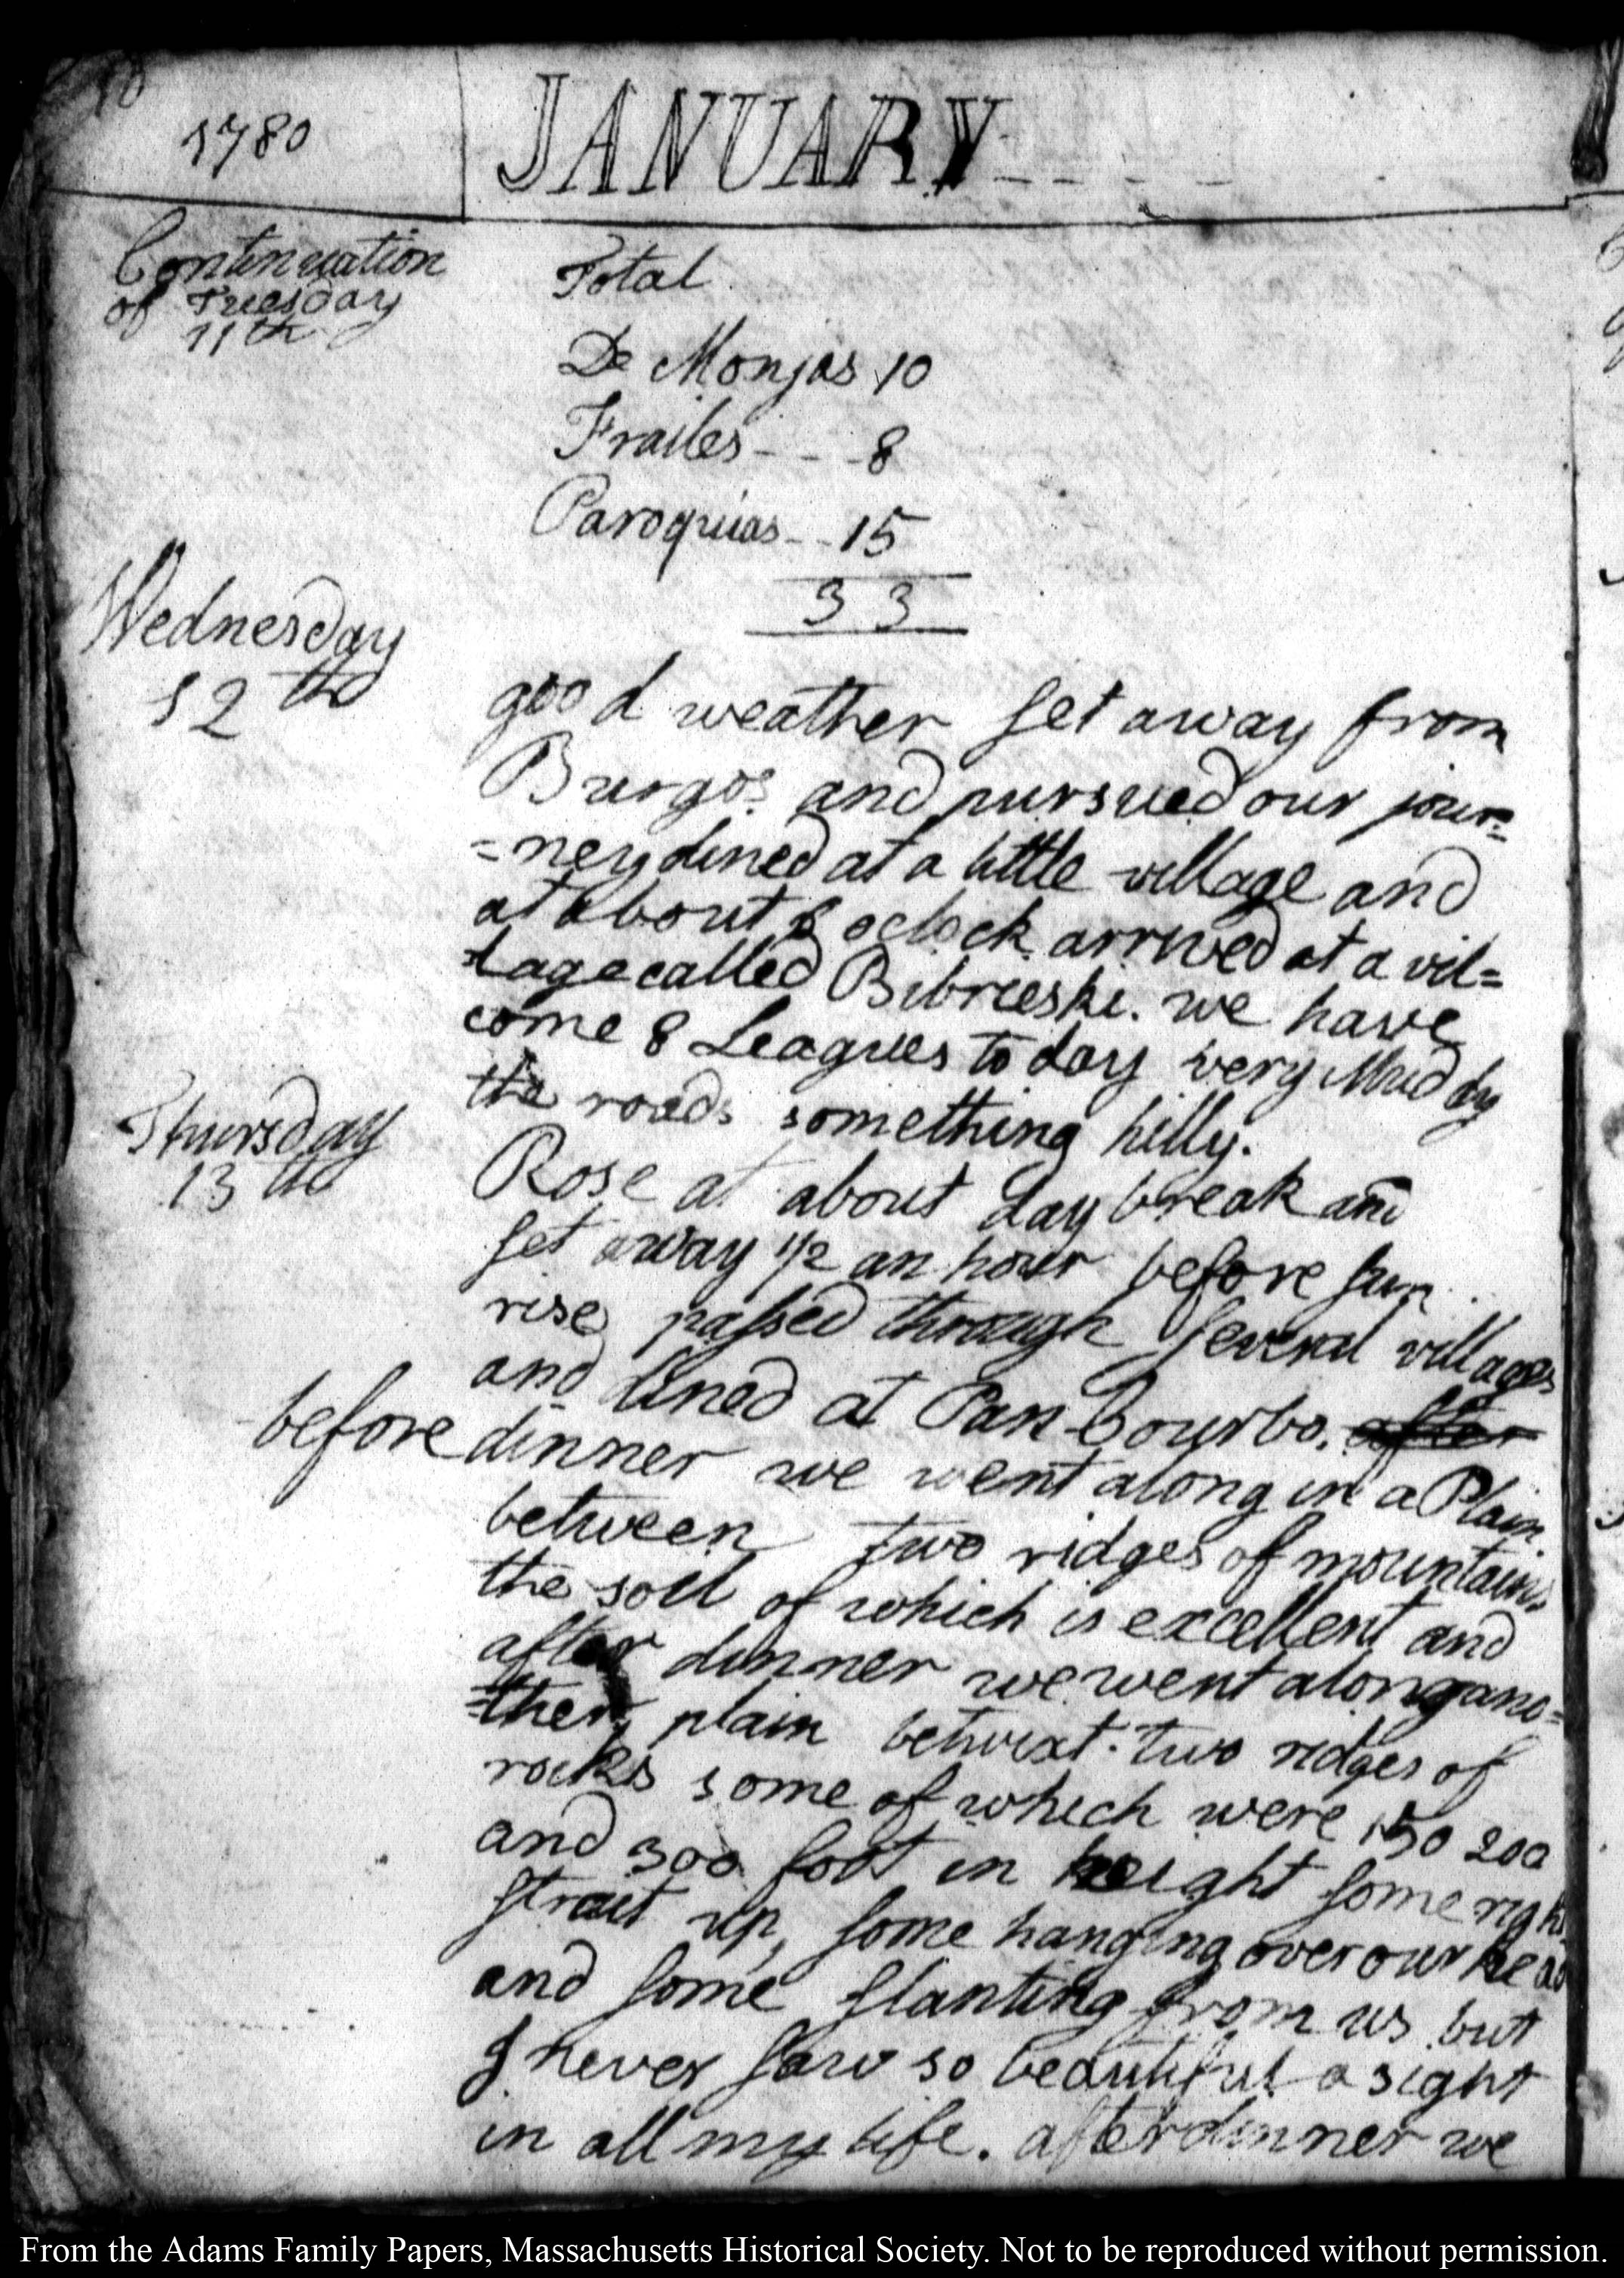 1780
JANUARY
Continuation
of Tuesday
11th
Total
De Monjas 10
Frailes - - - 8
Paroquias - - 15
33
Wednesday
12th
good weather set away from
Burgos and pursued our jour=
=ney dined at a little village and
at about 8 oclock arrived at a vil=
=lage called Bibrieski. we have
come 8 Leagues to day very Muddy
the roads something hilly.
Thursday
13th
Rose at about day break and
set away 1/2 an hour before sun
rise passed through several villages
and dined at Pan Courbo. after
before dinner we went along in a Plain
between two ridges of mountains
the soil of which is excellent and
after dinner we went along ano=
=ther plain betwixt two ridges of
rocks some of which were 150 200
and 300 foot in height some right
strait up, some hanging over our head
and some slanting from us but
I never saw so beautiful a sight
in all my life. after dinner we
From the Adams Family Papers, Massachusetts Historical Society. Not to be reproduced without permission.